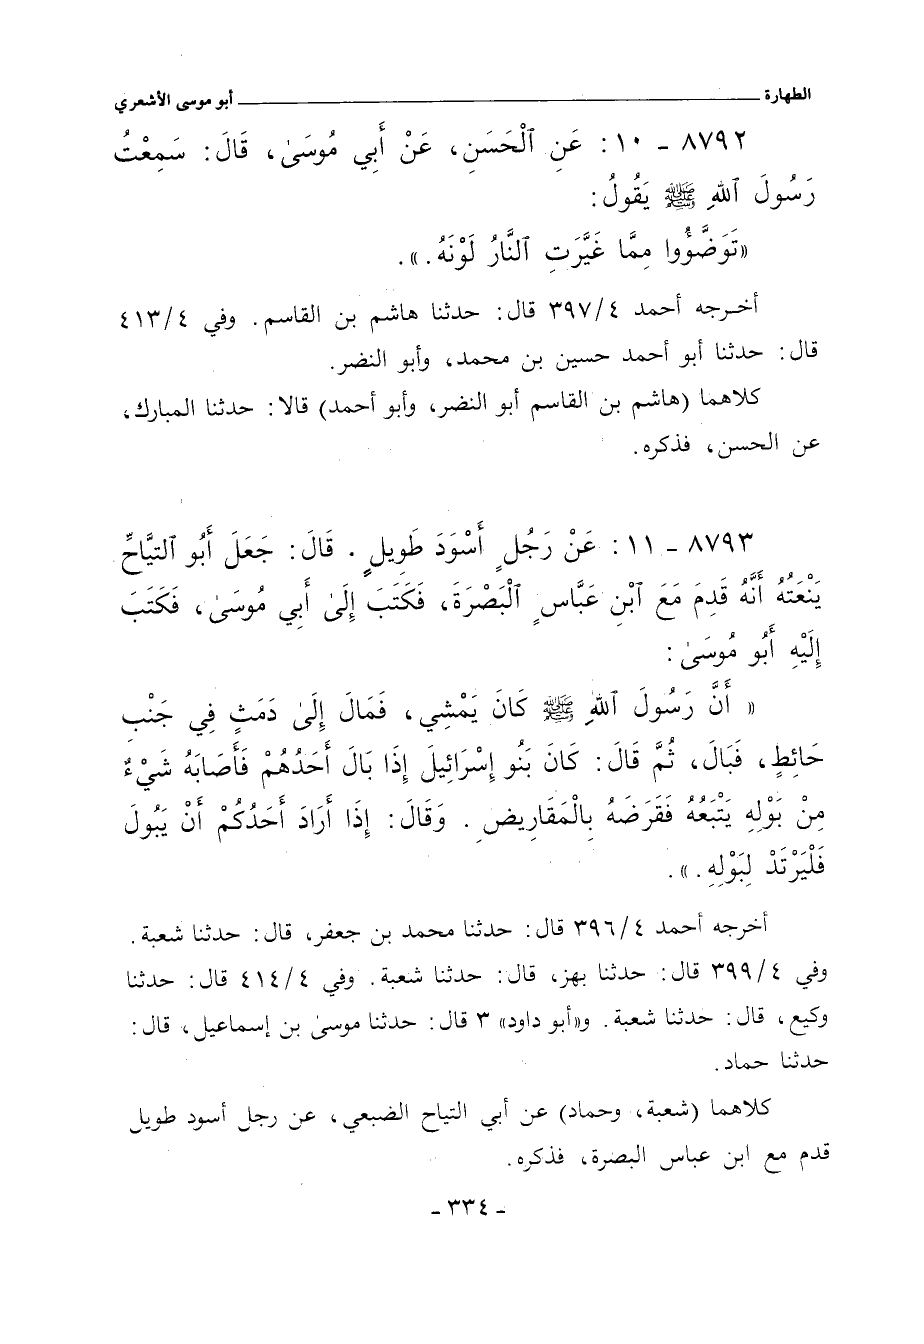 الطهارة ـــــــــــــــــــــــــــــــــــــــــــــــــ أبو موسى الأشعري
٨٧٩٢ - ١٠ : عَنِ ٱلْحَسَنِ، عَنْ أَبِي مُوسَىٰ، قَالَ: سَمِعْتُ
رَسُولَ ٱللهِ ﷺ يَقُولُ:
«تَوَضَّؤُوا مِمَّا غَيَّرَتِ ٱلنَّارُ لَوْنَهُ.».
أخرجه أحمد ٣٩٧/٤ قال: حدثنا هاشم بن القاسم. وفي ٤١٣/٤
قال: حدثنا أبو أحمد حسين بن محمد، وأبو النضر.
كلاهما (هاشم بن القاسم أبو النضر، وأبو أحمد) قالا: حدثنا المبارك،
عن الحسن، فذكره.
٨٧٩٣ - ١١: عَنْ رَجُلٍ أَسْوَدَ طَوِيلٍ. قَالَ: جَعَلَ أَبُو ٱلتَّيَّاحِ
يَنْعَتُهُ أَنَّهُ قَدِمَ مَعَ ٱبْنِ عَبَّاسٍ ٱلْبَصْرَةَ، فَكَتَبَ إِلَىٰ أَبِي مُوسَىٰ، فَكَتَبَ
إِلَيْهِ أَبُو مُوسَىٰ:
« أَنَّ رَسُولَ ٱللهِ ﷺ كَانَ يَمْشِي، فَمَالَ إِلَىٰ دَمَثٍ فِي جَنْبِ
حَائِطٍ، فَبَالَ، ثُمَّ قَالَ: كَانَ بَنُو إِسْرَائِيلَ إِذَا بَالَ أَحَدُهُمْ فَأَصَابَهُ شَيْءٌ
مِنْ بَوْلِهِ يَتْبَعُهُ فَقَرَضَهُ بِالْمَقَارِيضِ. وَقَالَ: إِذَا أَرَادَ أَحَدُكُمْ أَنْ يَبُولَ
فَلْيَرْتَدْ لِبَوْلِهِ.».
أخرجه أحمد ٣٩٦/٤ قال: حدثنا محمد بن جعفر، قال: حدثنا شعبة.
وفي ٣٩٩/٤ قال: حدثنا بهز، قال: حدثنا شعبة. وفي ٤١٤/٤ قال: حدثنا
وكيع، قال: حدثنا شعبة. و«أبو داود» ٣ قال: حدثنا موسىٰ بن إسماعيل، قال:
حدثنا حماد.
كلاهما (شعبة، وحماد) عن أبي التياح الضبعي، عن رجل أسود طويل
قدم مع ابن عباس البصرة، فذكره.
- ٣٣٤ -